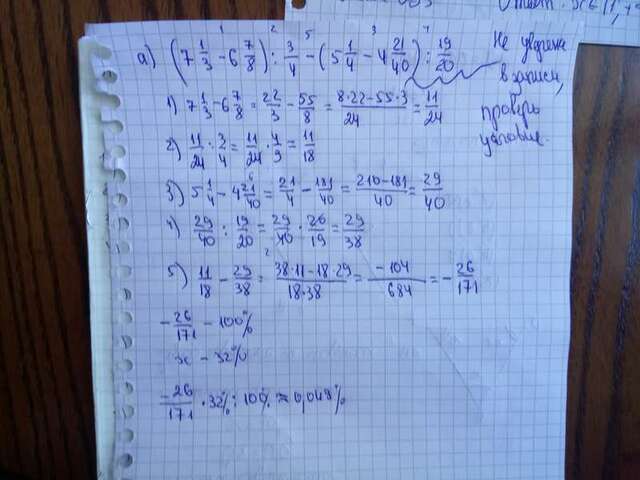 а) (7 1/3 - 6 7/8) : 3/4 - (5 1/4 - 4 21/40) : 19/20
1) 7 1/3 - 6 7/8 = 22/3 - 55/8 = 8·22-55·3/24 = 11/24
2) 11/24 : 3/4 = 11/24 · 4/3 = 11/18
3) 5 1/4 - 4 21/40 = 21/4 - 181/40 = 210-181/40 = 29/40
4) 29/40 : 19/20 = 29/40 · 20/19 = 29/38
5) 11/18 - 29/38 = 38·11-18·29/18·38 = -104/684 = -26/171
-26/171 - 100%
x - 32%
-26/171 · 32% : 100% ≈ 0,048%
Не уверена
в задании,
проверь
условие.